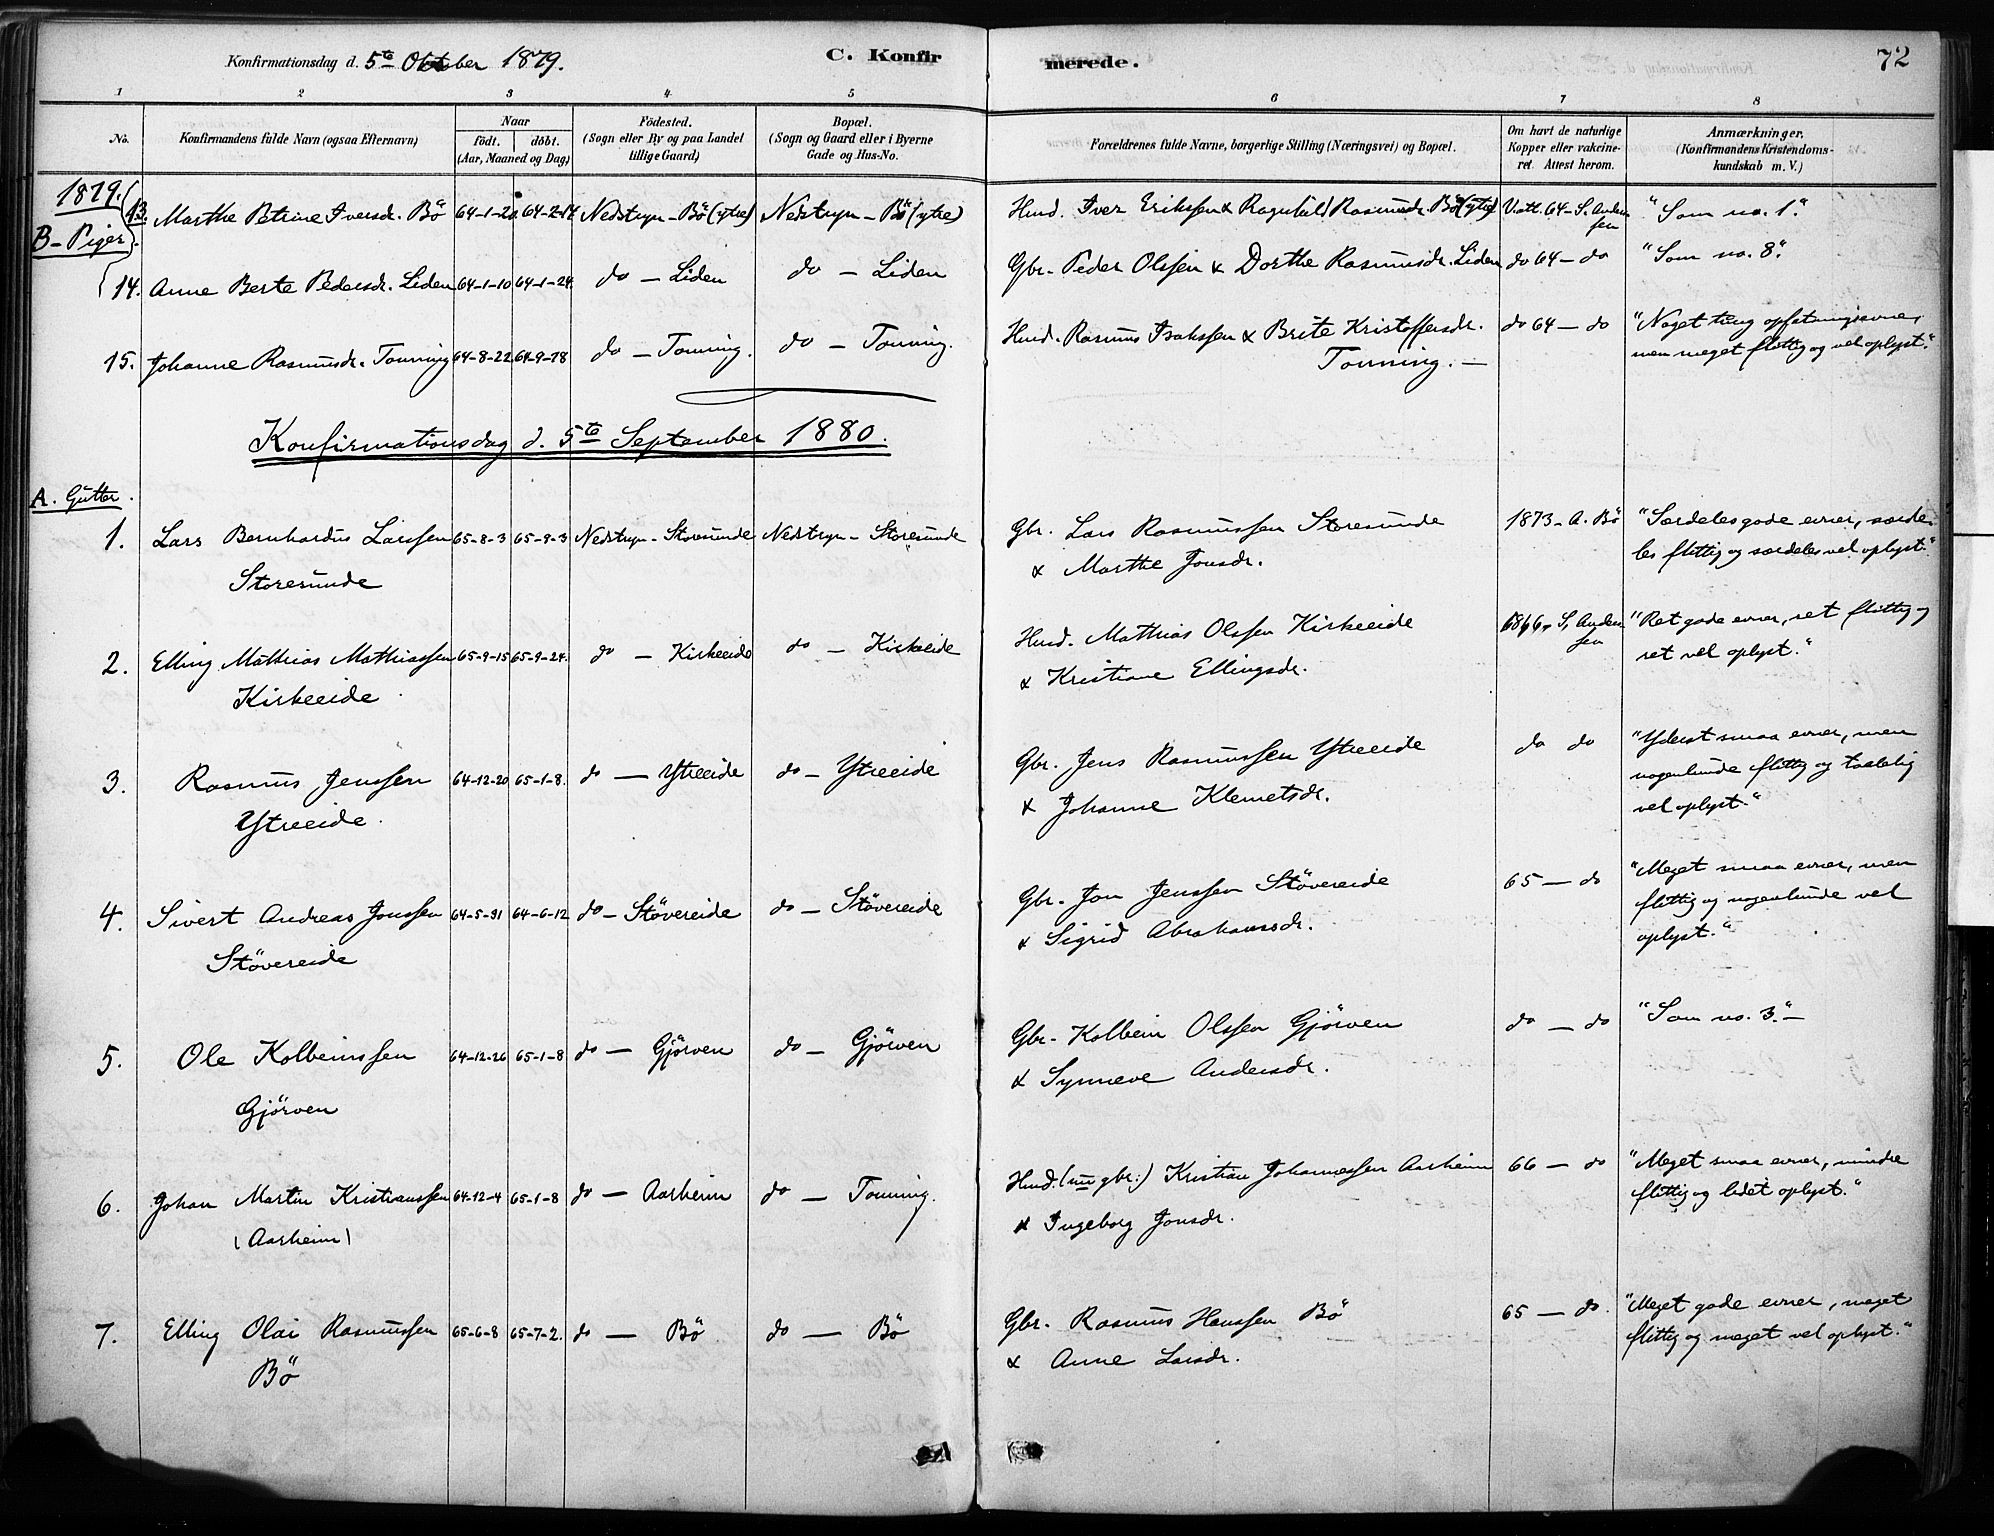 Konfirmationsdag d. 5te October 1879.
C. Konfirmerede.
72
1 2 3 4 5 6 7 8
No.
Konfirmandens fulde Navn (ogsaa Efternavn)
Naar
födt. döbt.
(Aar, Maaned og Dag)
Födested.
(Sogn eller By og paa Landet
tillige Gaard)
Bopæl.
(Sogn og Gaard eller i Byerne
Gade og Hus-No.
Forældrenes fulde Navne, borgerlige Stilling (Næringsvei) og Bopæl.
Om havt de naturlige
Kopper eller vakcine-
ret. Attest herom.
Anmærkninger.
(Konfirmandens Kristendoms-
kundskab m. V.)
1879.
B - Piger
13. Marthe Petrine Iversdr. Bö 64-1-20 64-2-14 Nedstryn - Bö (ytre) Nedstryn - Bö (ytre) Husd. Iver Erikssen & Ragnhild Rasmusdr. Bö (ytre) V. att. 64 - S.Ander-
sen
"Som no. 1."
14. Anne Berte Pedersdr. Liden 64-1-10 64-1-24. do - Liden do - Liden Gbr. Peder Olssen & Dorthe Rasmusdr. Liden do 64 - do "Som no. 8."
15. Johanne Rasmusdr. Tonning 64-8-22 64-9-18 do - Tonning. do - Tonning. Husd. Rasmus Isakssen & Brite Kristoffersdr.
Tonning. -
do 64 - do "Noget tung opfatningsevne,
men meget flittig og vel oplyst."
Konfirmationsdag d. 5te September 1880.
A. Gutter.
1. Lars Bernhardus Larssen
Storesunde
65-8-3 65-9-3 Nedstryn - Storesunde Nedstryn - Storesunde Gbr. Lars Rasmussen Storesunde
& Marthe Jonsdr.
1873 - A. Bö "Særdeles gode evner, særde-
les flittig og særdeles vel oplyst."
2. Elling Mathias Mathiassen
Kirkeeide
65-9-15 65-9-24. do - Kirkeeide do - Kirkeeide Husd. Mathias Olssen Kirkeeide
& Kristiane Ellingsdr.
1866, S. Ander-
sen
"Ret gode evner, ret flittig og
ret vel oplyst."
3. Rasmus Jenssen
Ytreeide.
64-12-20 65-1-8. do - Ytreeide do - Ytreeide Gbr. Jens Rasmussen Ytreeide
& Johanne Klemetsdr.
do do "Yderst smaa evner, men
nogenlunde flittig og taalelig
vel oplyst."
4. Sivert Andreas Jonssen
Stövereide
64-5-31 64-6-12 do - Stövereide do - Stövereide Gbr. Jon Jenssen Stövereide
& Sigrid Abrahamsdr.
65 - do "Meget smaa evner, men
flittig og nogenlunde vel
oplyst."
5. Ole Kolbeinssen
Gjörven
64-12-26 65-1-8 do - Gjörven do - Gjörven Gbr. Kolbein Olssen Gjörven
& Synneve Andersdr.
do - do "Som no. 3." -
6. Johan Martin Kristianssen
(Aarheim)
64-12-4 65-1-8 do - Aarheim do - Tonning. Husd. (nu gbr.) Kristian Johannessen Aarheim
& Ingeborg Jonsdr.
66 - do "Meget smaa evner, mindre
flittig og lidet oplyst."
7. Elling Olai Rasmussen
Bö
65-6-8 65-7-2. do - Bö do - Bö Gbr. Rasmus Hanssen Bö
& Anne Larsdr.
65 - do. "Meget gode evner, meget
flittig og meget vel oplyst."